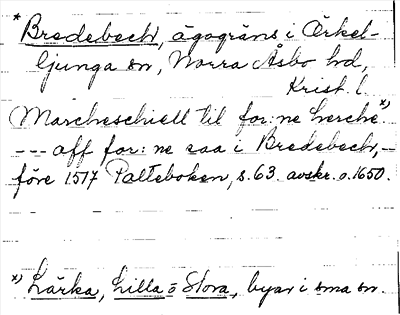 * Bredebeck, ägogräns i Örkel-
ljunga sn, Norra Åsbo hd,
Krist. l.
Marcheschiell til for: ne Lerche *)
--- aff for: ne aa i Bredebech, –
före 1517 Palteboken, s. 63. avskr. o. 1650.
*) Lärka, Lilla o Stora, byar i sma sn.